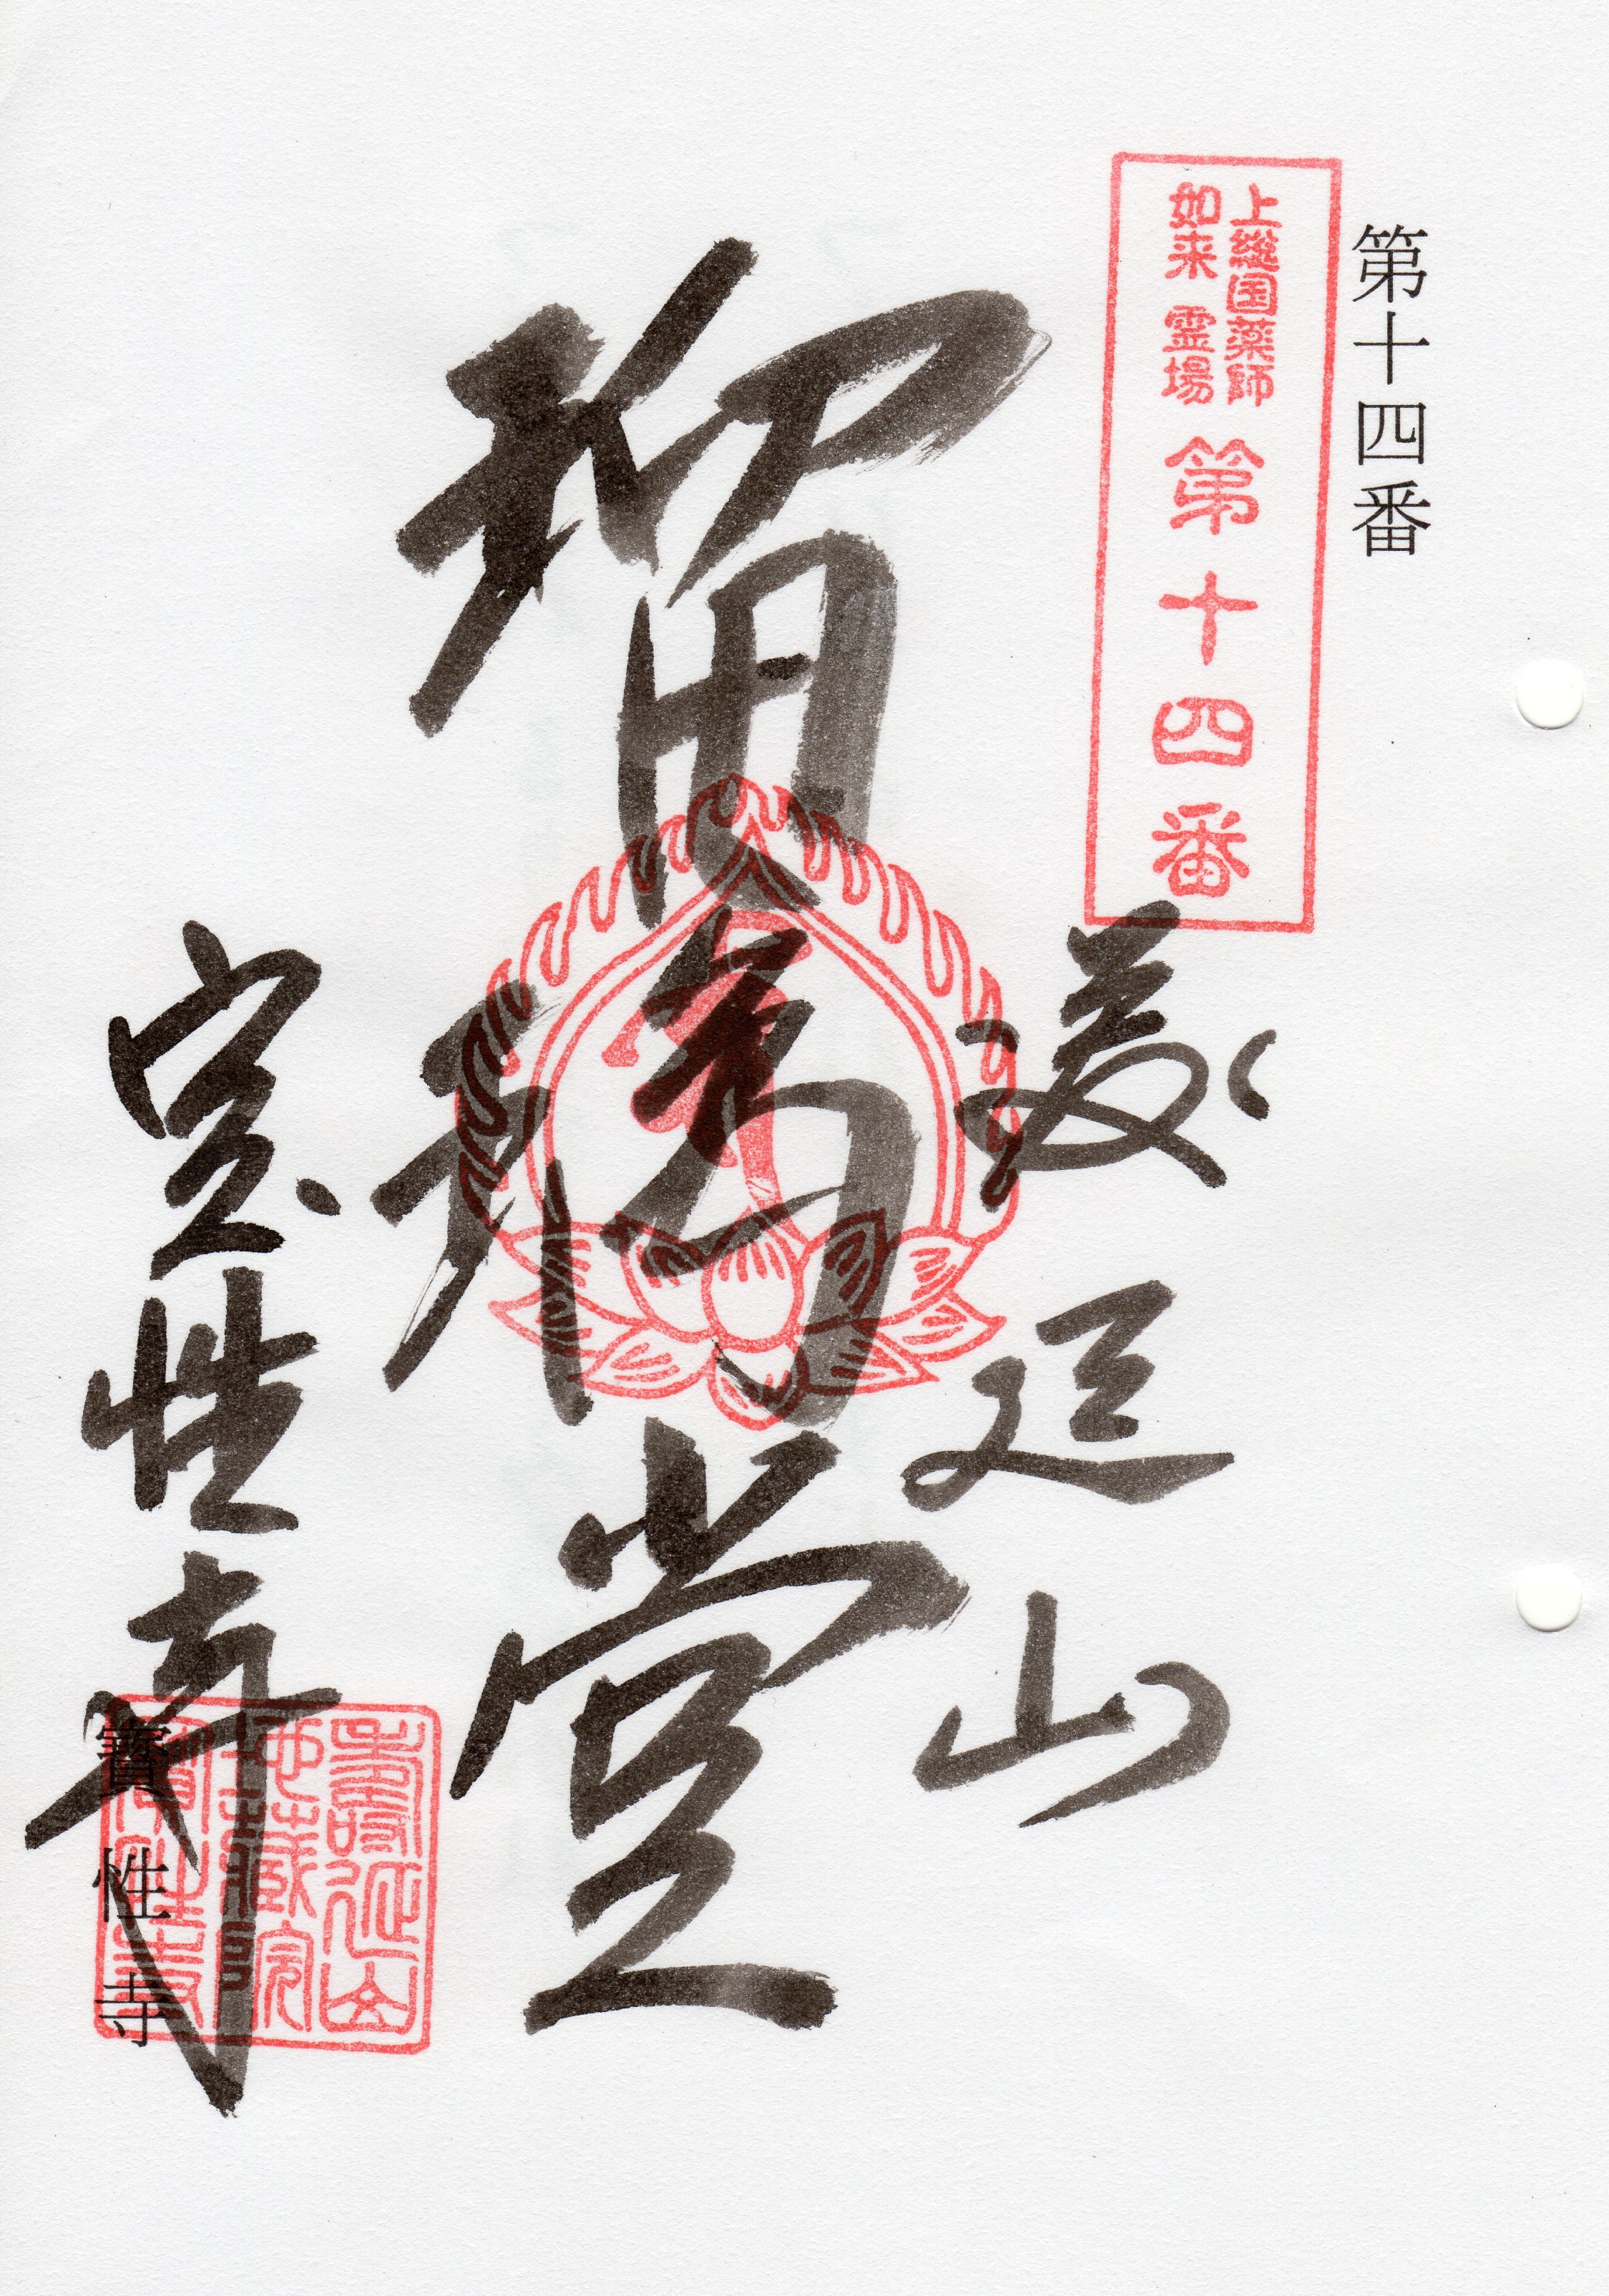 第十四番
上総国薬師
如来 霊場
第十四番
延山
瑠璃堂
宝性寺
延山
地蔵院
寶性寺
寶性寺